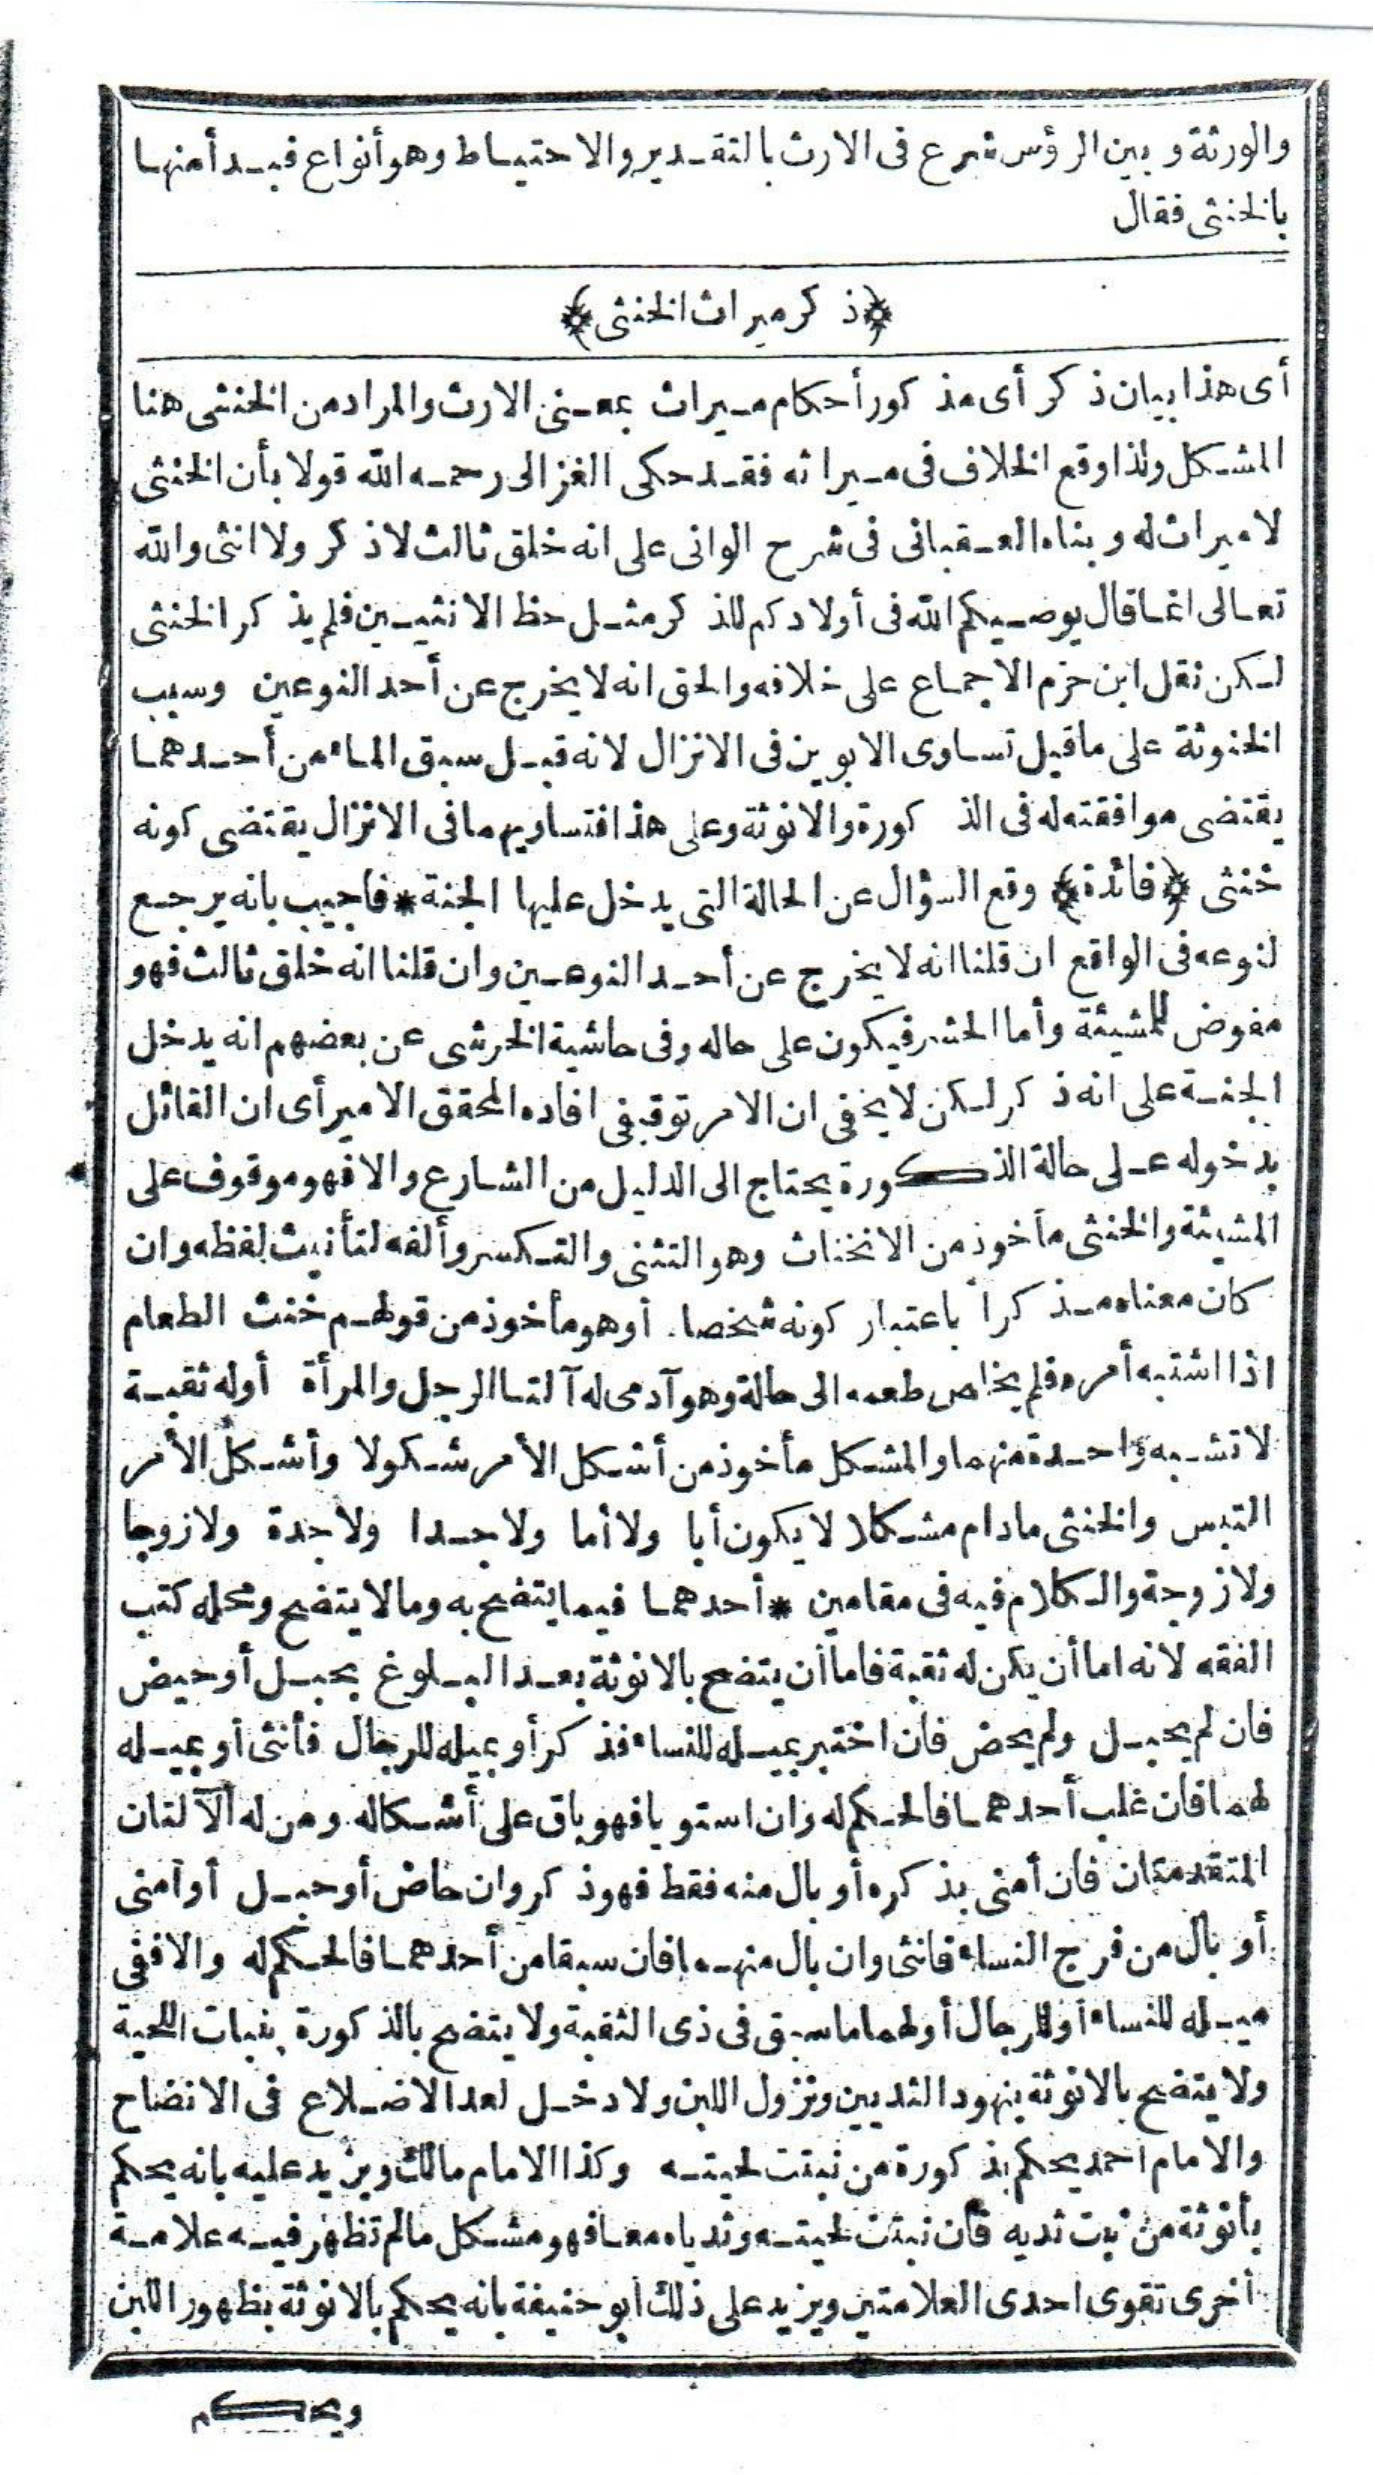 والورثة وبين الرؤس شرع فى الارث بالتقدير والاحتياط وهو أنواع فبدأ منها
بالخنثى فقال
﴿ذكر ميراث الخنثى﴾
أى هذا بيان ذكر أى مذكور أحكام ميراث بمعنى الارث والمراد من الخنثى هنا
المشكل ولذا وقع الخلاف فى ميراثه فقد حكى الغزالى رحمه الله قولا بأن الخنثى
لاميراث له وبناه العقبانى فى شرح الوانى على انه خلق ثالث لاذكر ولا انثى والله
تعالى انما قال يوصيكم الله فى أولادكم للذكر مثل حظ الانثيين فلم يذكر الخنثى
لكن نقل ابن حزم الاجماع على خلافه والحق انه لا يخرج عن أحد النوعين وسبب
الخنوثة على ماقيل تساوى الابوين فى الانزال لانه قيل سبق الماء من أحدهما
يقتضى موافقته له فى الذكورة والانوثة وعلى هذا فتساويهما فى الانزال يقتضى كونه
خنثى ﴿فائدة﴾ وقع السؤال عن الحالة التى يدخل عليها الجنة * فاجيب بانه يرجع
لنوعه فى الواقع ان قلنا انه لا يخرج عن أحد النوعين وان قلنا انه خلق ثالث فهو
مفوض للمشيئة وأما الحشر فيكون على حاله وفى حاشية الخرشى عن بعضهم انه يدخل
الجنة على انه ذكر لكن لا يخفى ان الامر توقيفى افاده المحقق الامير أى ان القائل
بدخوله على حالة الذكورة يحتاج الى الدليل من الشارع والا فهو موقوف على
المشيئة والخنثى مأخوذ من الانخناث وهو التثنى والتكسر وألفه لتأنيث لفظه وان
كان معناه مذكرا باعتبار كونه شخصا. أو هو مأخوذ من قولهم خنث الطعام
اذا اشتبه أمره فلم يخلص طعمه الى حالة وهو آدمى له آلتا الرجل والمرأة أوله ثقبة
لا تشبه واحدة منهما والمشكل مأخوذ من أشكل الأمر شكولا وأشكل الأمر
التبس والخنثى مادام مشكلا لا يكون أبا ولا أما ولا جدا ولا جدة ولا زوجا
ولا زوجة والكلام فيه فى مقامين * أحدهما فيما يتضح به ومالا يتضح ومحله كتب
الفقه لانه اما أن يكن له ثقبة فاما أن يتضح بالانوثة بعد البلوغ بحبل أوحيض
فان لم يحبل ولم يحض فان اختبر بميله للنساء فذكر أو بميله للرجال فأنثى أو بميله
لهما فان غلب أحدهما فالحكم له وان استويا فهو باق على أشكاله ومن له الآلتان
المتقدمتان فان أمنى بذكره أو بال منه فقط فهو ذكر وان حاض أو حبل أو أمنى
أو بال من فرج النساء فانثى وان بال منهما فان سبقا من أحدهما فالحكم له والا ففى
ميله للنساء أو للرجال أولهما ما سبق فى ذى الثقبة ولا يتضح بالذكورة بنبات اللحية
ولا يتضح بالانوثة بنهود الثديين ونزول اللبن ولا دخل لعد الاضلاع فى الاتضاح
والامام احمد يحكم بذكورة من نبتت لحيته وكذا الامام مالك ويزيد عليه بانه يحكم
بأنوثة من نبت ثديه فان نبتت لحيته وثدياه معا فهو مشكل مالم تظهر فيه علامة
أخرى تقوى احدى العلامتين ويزيد على ذلك أبو حنيفة بانه يحكم بالانوثة بظهور اللبن
ويحكم